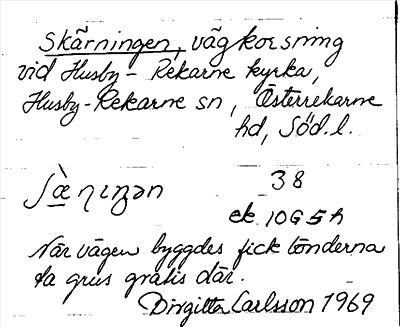 Skärningen, vägkorsning
vid Husby-Rekarne kyrka,
Husby-Rekarne sn, Österrekarne
hd, Söd. l.
38
ek 10G5h
När vägen byggdes fick bönderna
ta grus gratis där.
Birgitta Carlsson 1969